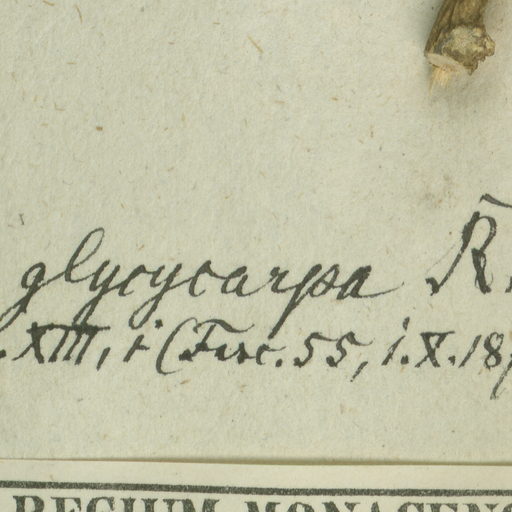 glycycarpa R.
. XIII, i (Fasc. 55, 1. X. 18
REGIUM MONACENS